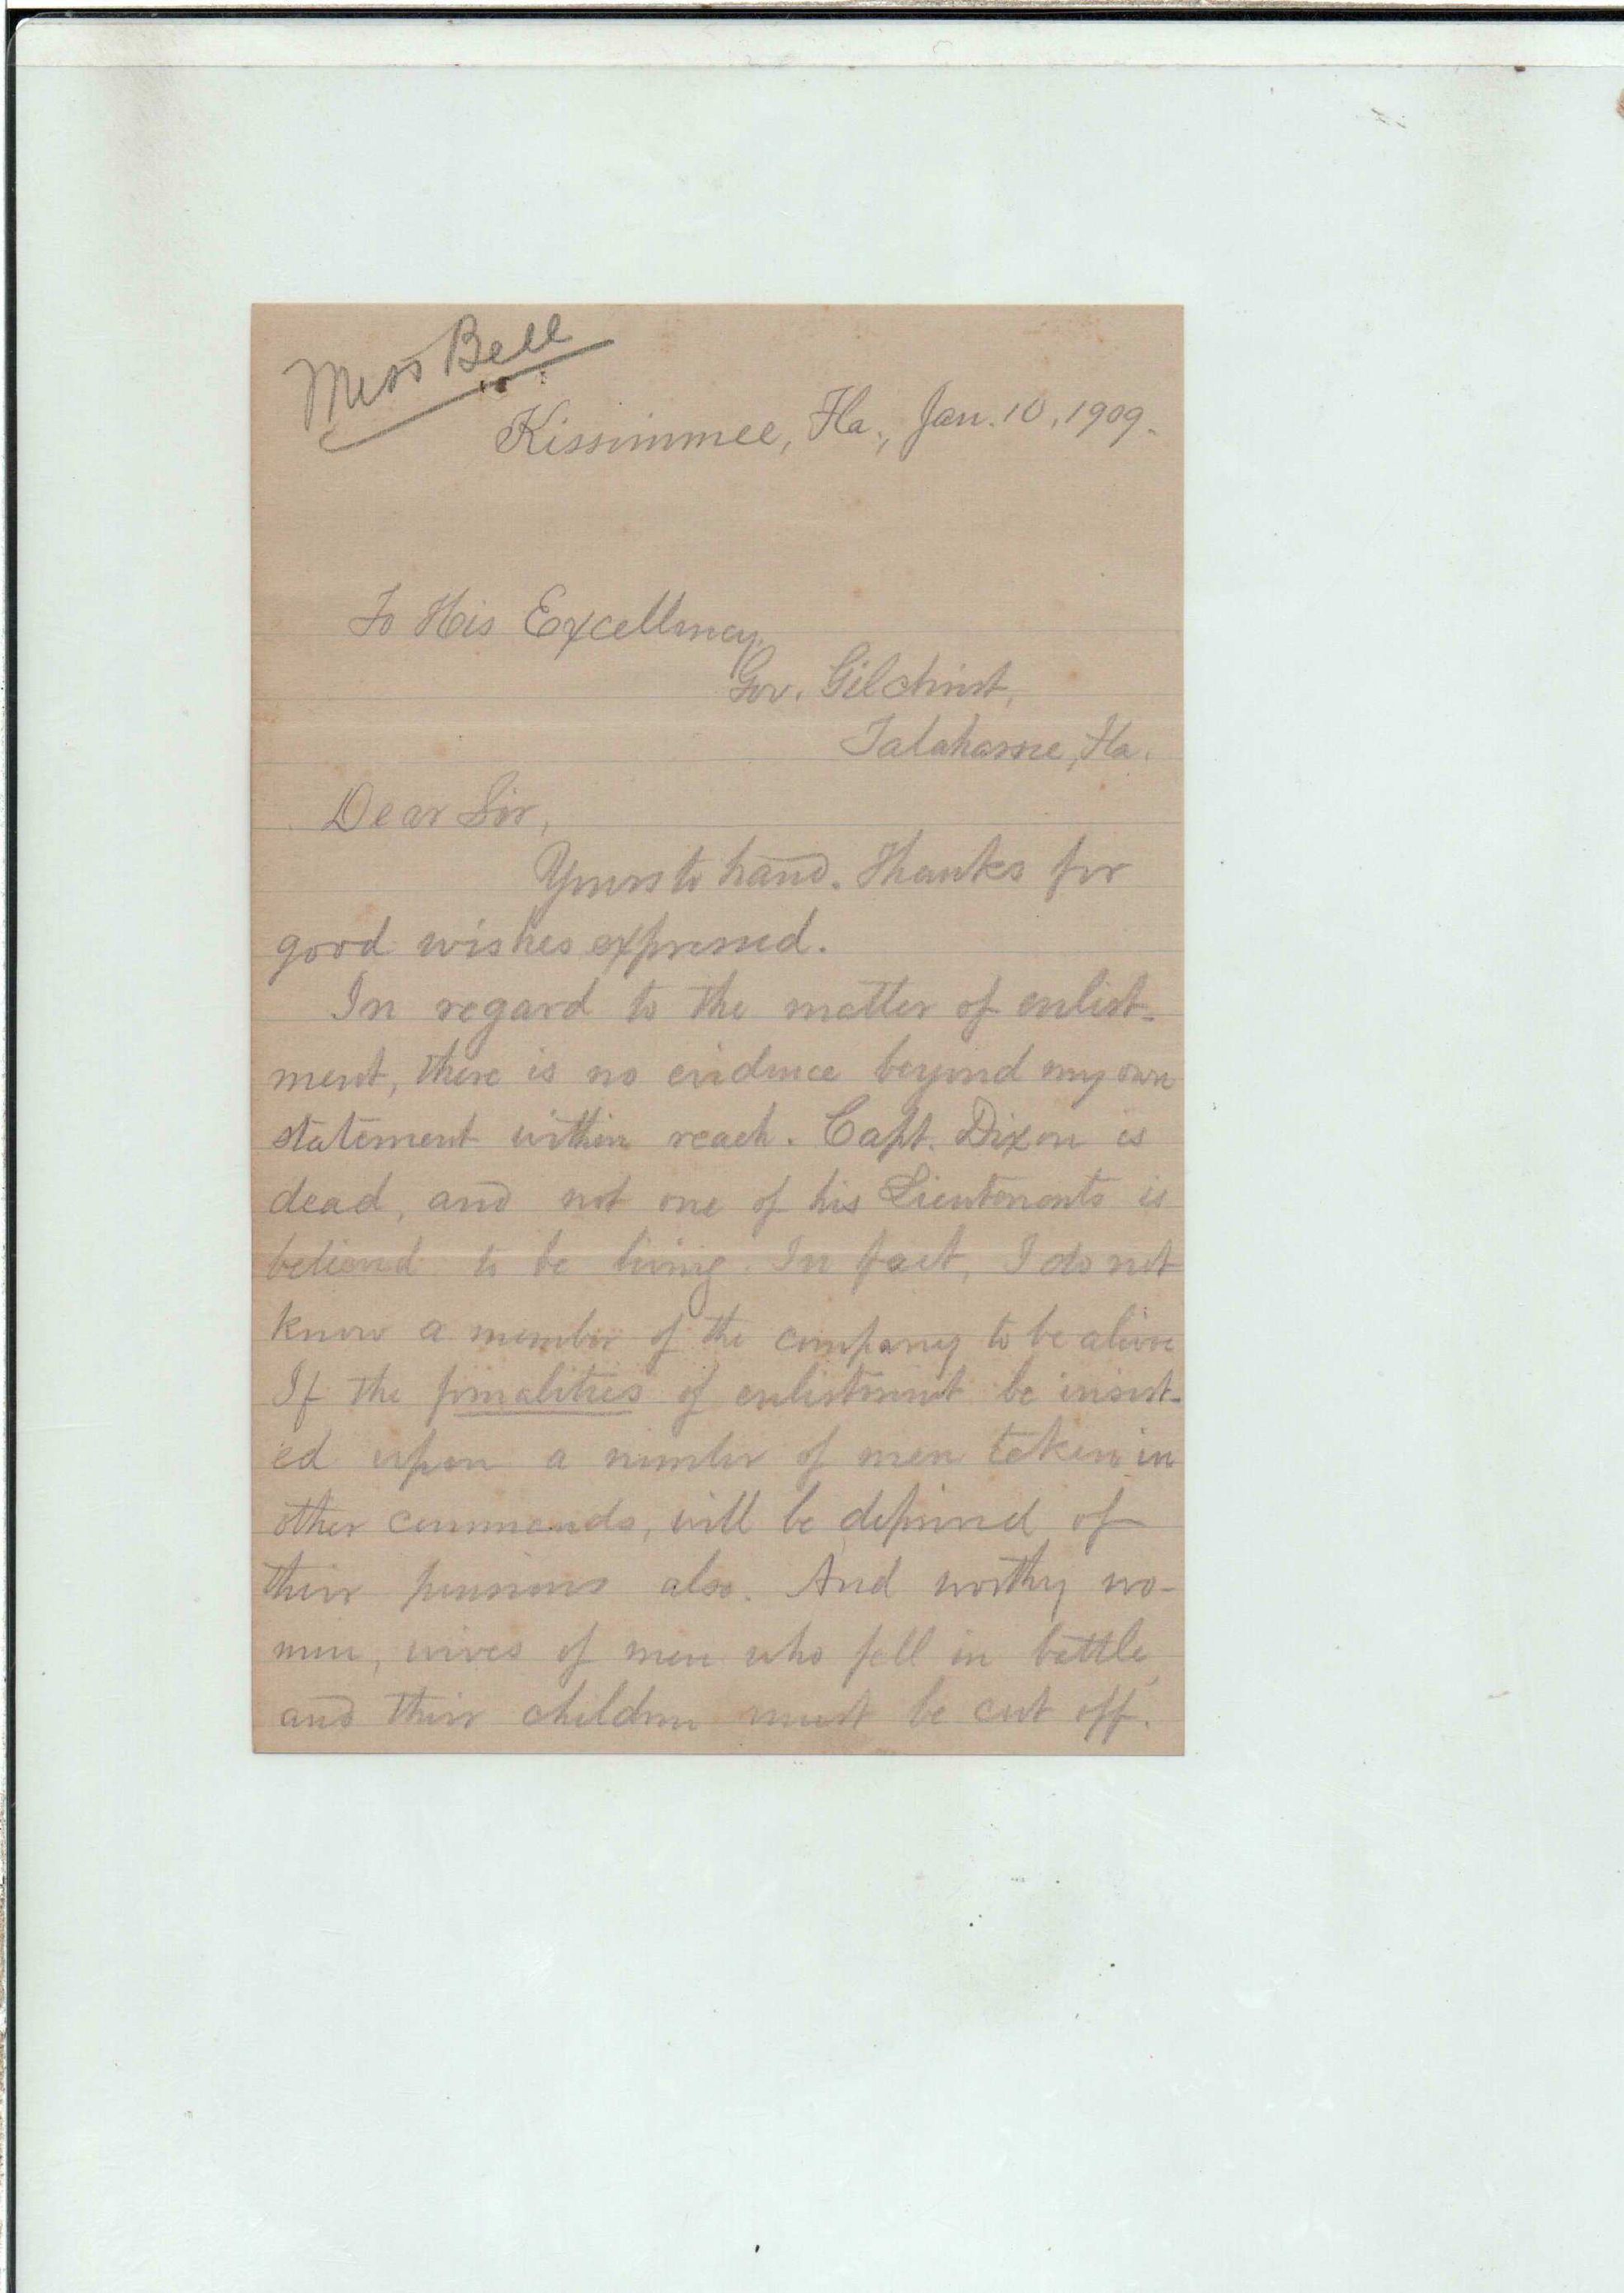 Miss Bell
Kissimmee, Fla., Jan. 10, 1909.
To His Excellency,
Gov. Gilchrist,
Talahassee, Fla.
Dear Sir,
Yours to hand. Thanks for
good wishes expressed.
In regard to the matter of enlist-
ment, there is no evidence beyond my own
statement within reach. Capt. Dixon is
dead, and not one of his Lieutenants is
believed to be living. In fact, I do not
know a member of the company to be alive
If the formalities of enlistment be insist-
ed upon a number of men taken in
other commands, will be deprived of
their pensions also. And worthy wo-
men, wives of men who fell in battle,
and their children must be cut off.